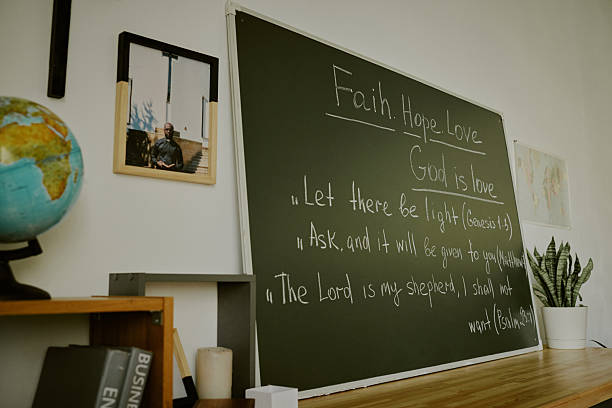 Faih. Hope. Love
God is love
„Let there be light (Genesis 1:3)
„Ask, and it will be given to you
„The Lord is my shepherd, I shall not
want (Psalm